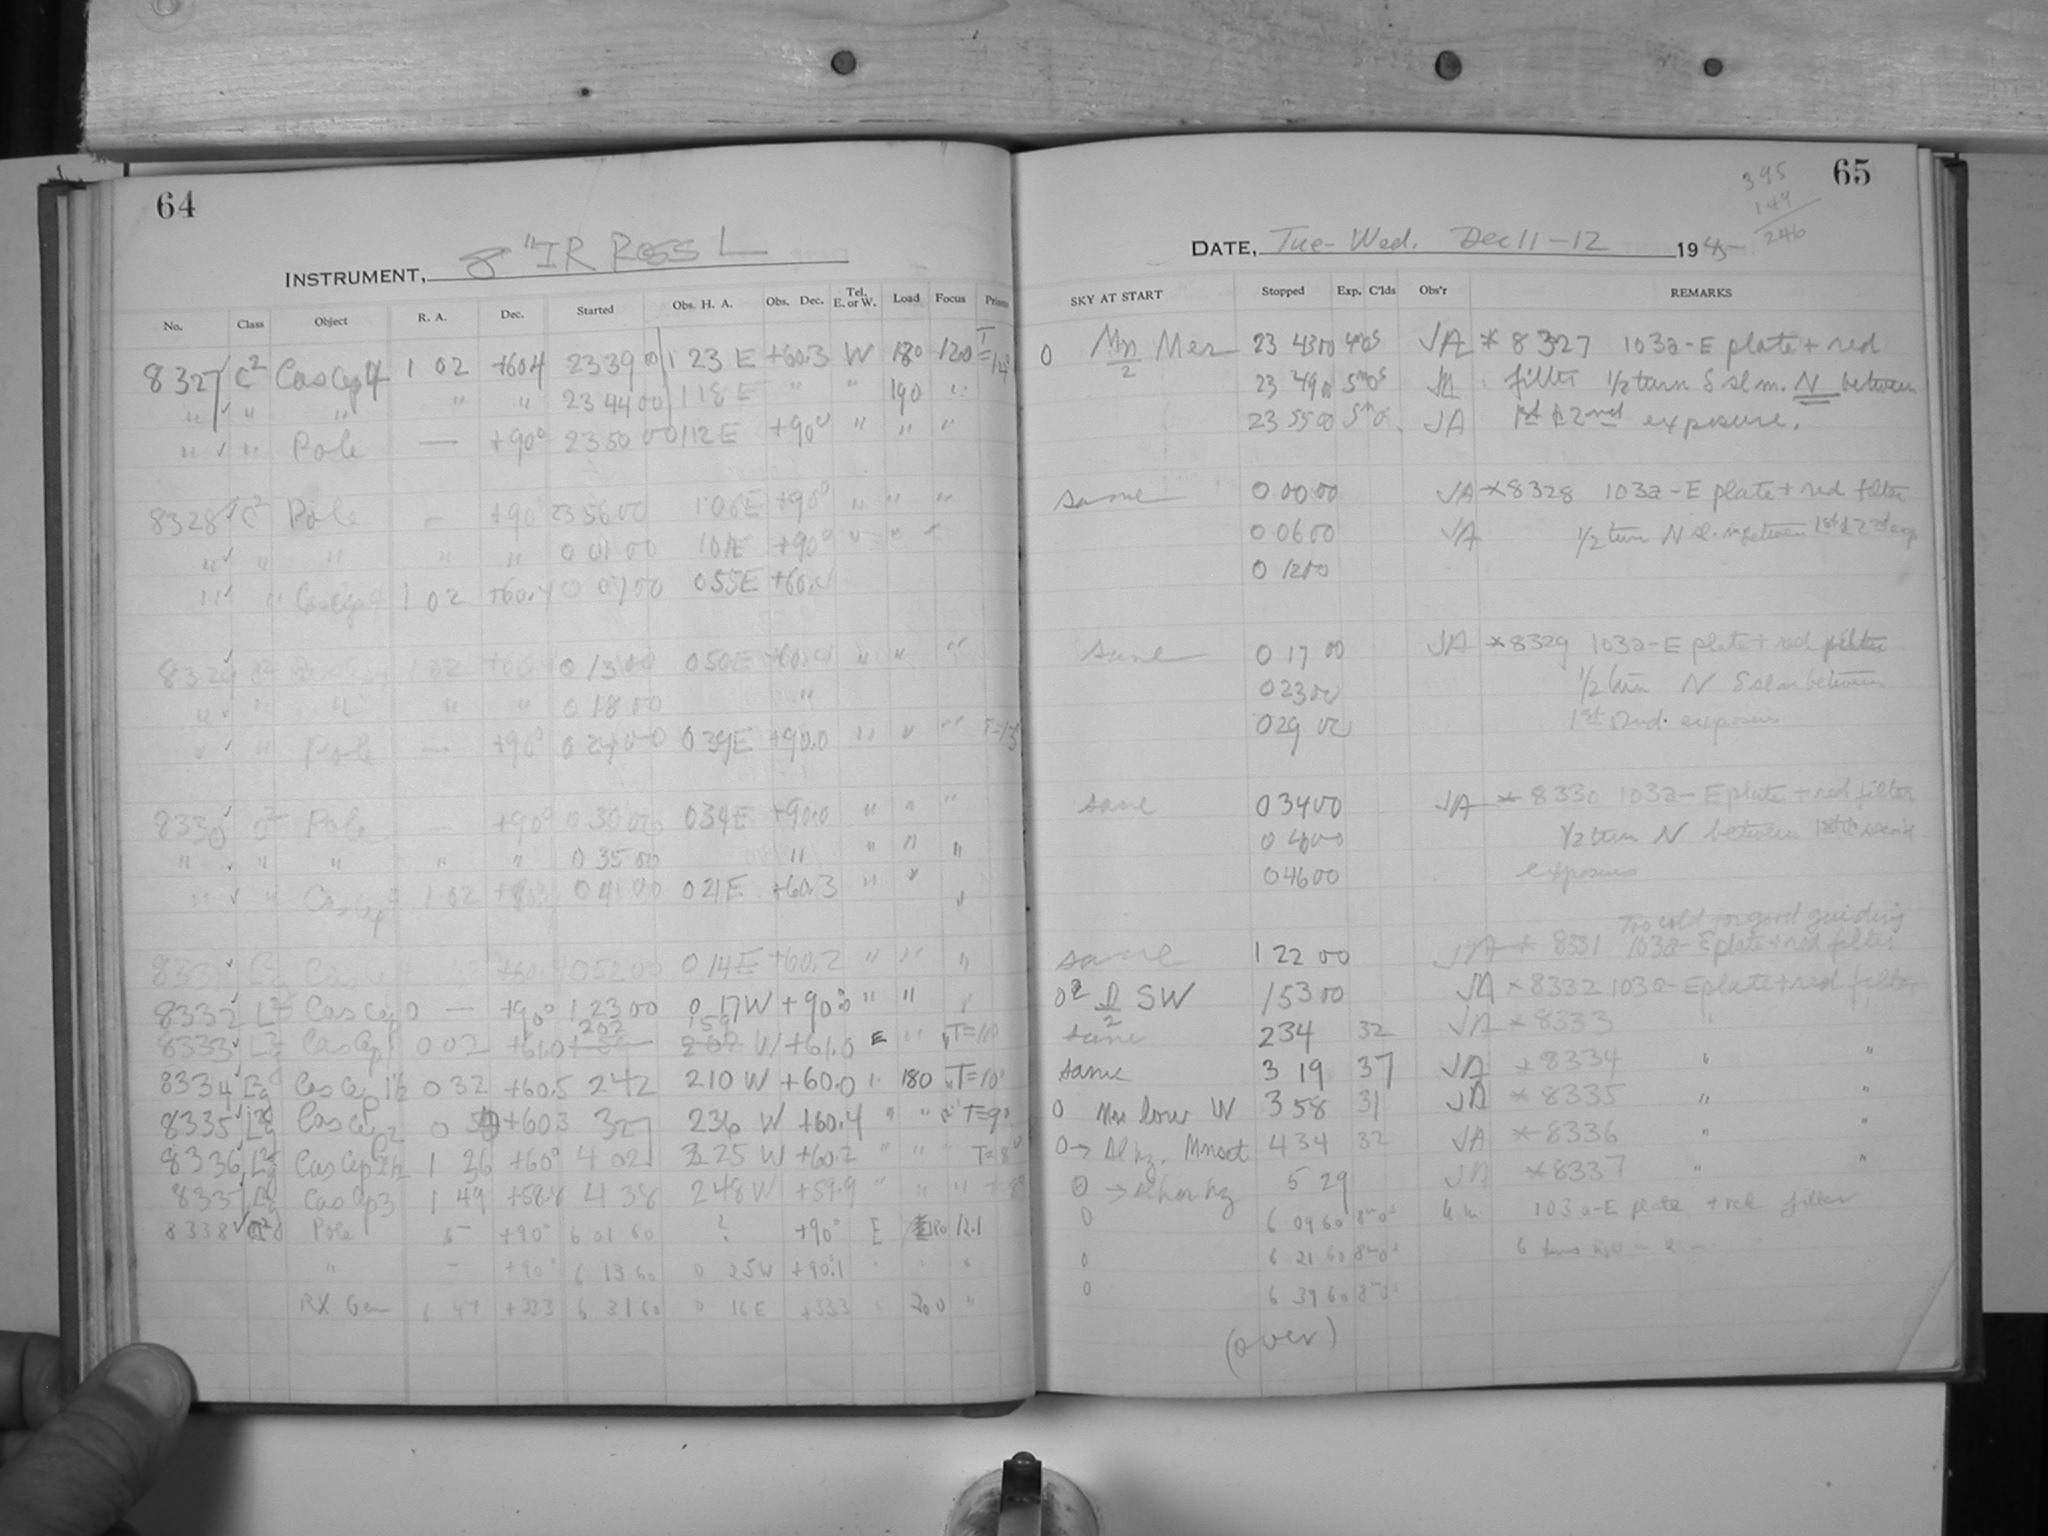 64
INSTRUMENT, 8" IR ROSS L
No. Class Object R. A. Dec. Started Obs. H. A. Obs. Dec. Tel. E. or W. Load Focus
8327 C2 CasCep4 1 02 +60.4 23 39 0 1 23 E +60.3 W 180 12.0
" " " " " 23 44 00 1 18 E " " 190 "
" " Pole — +90° 23 50 00 1 12 E +90° " " "
8328 C2 Pole – +90° 23 56 00 1 06 E +90° " " "
" " " " " 0 01 00 1 01 E +90° " " "
" " CasCep4 1 02 +60.4 0 07 00 0 55 E +60.4
8329 C2 1 02 0 13 00 0 50 E +60.4 " " "
" " " " " 0 18 00 "
" " Pole — +90° 0 24 00 0 39 E +90.0 " " " T=13°
8330 C2 Pole – +90° 0 30 00 0 34 E +90.0 " " "
" " " " " 0 35 00 " " " "
" " CasCep4 1 02 0 41 00 0 21 E +60.3 " " "
8331 0 52 00 0 14 E +60.2 " " "
8332 CasCep0 — +90° 1 23 00 0 17 W +90.0 " "
8333 CasCep1 0 02 +61.0 202 159 W +61.0 E " " T=10
8334 CasCep1½ 0 32 +60.5 2 42 2 10 W +60.0 " 180 " T=10°
8335 CasCep2 0 +60.3 3 27 2 36 W +60.4 " " " T=9°
8336 CasCep2½ 1 26 +60° 4 02 3 25 W +60.2 " " " T=8°
8337 CasCep3 1 49 +58.8 4 38 2 48 W +59.9 " " " 8°
8338 Pole – +90° 6 01 60 ? +90° E 180 12.1
" – +90° 6 13 60 0 25 W +90.1 " " "
RX Gem 6 47 +33.3 6 31 60 0 16 E +33.3 " 200 "
65
395
149
246
DATE, Tue-Wed. Dec 11-12 1945
SKY AT START Stopped Exp. C'lds Obs'r REMARKS
0 Mn/2 Mer 23 43 00 4m0s JA * 8327 103a-E plate + red
23 49 0 5m0s JA filter 1/2 turn S sl.m. N between
23 55 00 5m0s JA 1st & 2nd exposure.
same 0 00 00 JA *8328 103a-E plate + red filter
0 06 00 JA 1/2 turn N
0 12 00
same 0 17 00 JA *8329 103a-E plate + red filter
0 23 00 1/2 turn N S sl m between
0 29 00 1st 2nd. exposures
same 0 34 00 JA * 8330 103a-E plate + red filter
0 40 00 1/2 turn N between
0 46 00 exposures
Too cold for good guiding
same 1 22 00 JA * 8331 103a-E plate + red filter
SW 1 53 00 JA *8332 103a-E plate + red filter
same 2 34 32 JA *8333 "
same 3 19 37 JA *8334 " "
0 Mn low W 3 58 31 JA *8335 " "
0→ Al hz. Mnset 4 34 32 JA *8336 "
5 29 JA *8337 " "
0 6 09 60 8m0s 103a-E plate + red filter
0 6 21 60 8m0s 6 turns
0 6 39 60 8m0s
(over)